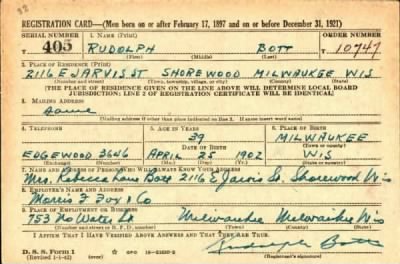 REGISTRATION CARD—(Men born on or after February 17, 1897 and on or before December 31, 1921)
SERIAL NUMBER 1. NAME (Print) ORDER NUMBER
T 405 RUDOLPH BOTT 10747
(First) (Middle) (Last)
2. PLACE OF RESIDENCE (Print)
2116 E JARVIS ST SHOREWOOD MILWAUKEE WIS
(Number and street) (Town, township, village, or city) (County) (State)
[THE PLACE OF RESIDENCE GIVEN ON THE LINE ABOVE WILL DETERMINE LOCAL BOARD
JURISDICTION; LINE 2 OF REGISTRATION CERTIFICATE WILL BE IDENTICAL]
3. MAILING ADDRESS
Same
[Mailing address if other than place indicated on line 2. If same insert word same]
4. TELEPHONE 5. AGE IN YEARS 6. PLACE OF BIRTH
39 MILWAUKEE
DATE OF BIRTH (Town or county)
EDGEWOOD 3646 APRIL 25 1902 WIS
(Exchange) (Number) (Mo.) (Day) (Yr.) (State or country)
7. NAME AND ADDRESS OF PERSON WHO WILL ALWAYS KNOW YOUR ADDRESS
Mrs. Rebecca Bott 2116 E Jarvis St. Shorewood Wis
8. EMPLOYER'S NAME AND ADDRESS
Morris F Fox & Co
9. PLACE OF EMPLOYMENT OR BUSINESS
753 No Water St Milwaukee Milwaukee Wis
(Number and street or R. F. D. number) (Town) (County) (State)
I AFFIRM THAT I HAVE VERIFIED ABOVE ANSWERS AND THAT THEY ARE TRUE.
D. S. S. Form 1
(Revised 1-1-42) GPO Rudolph Bott